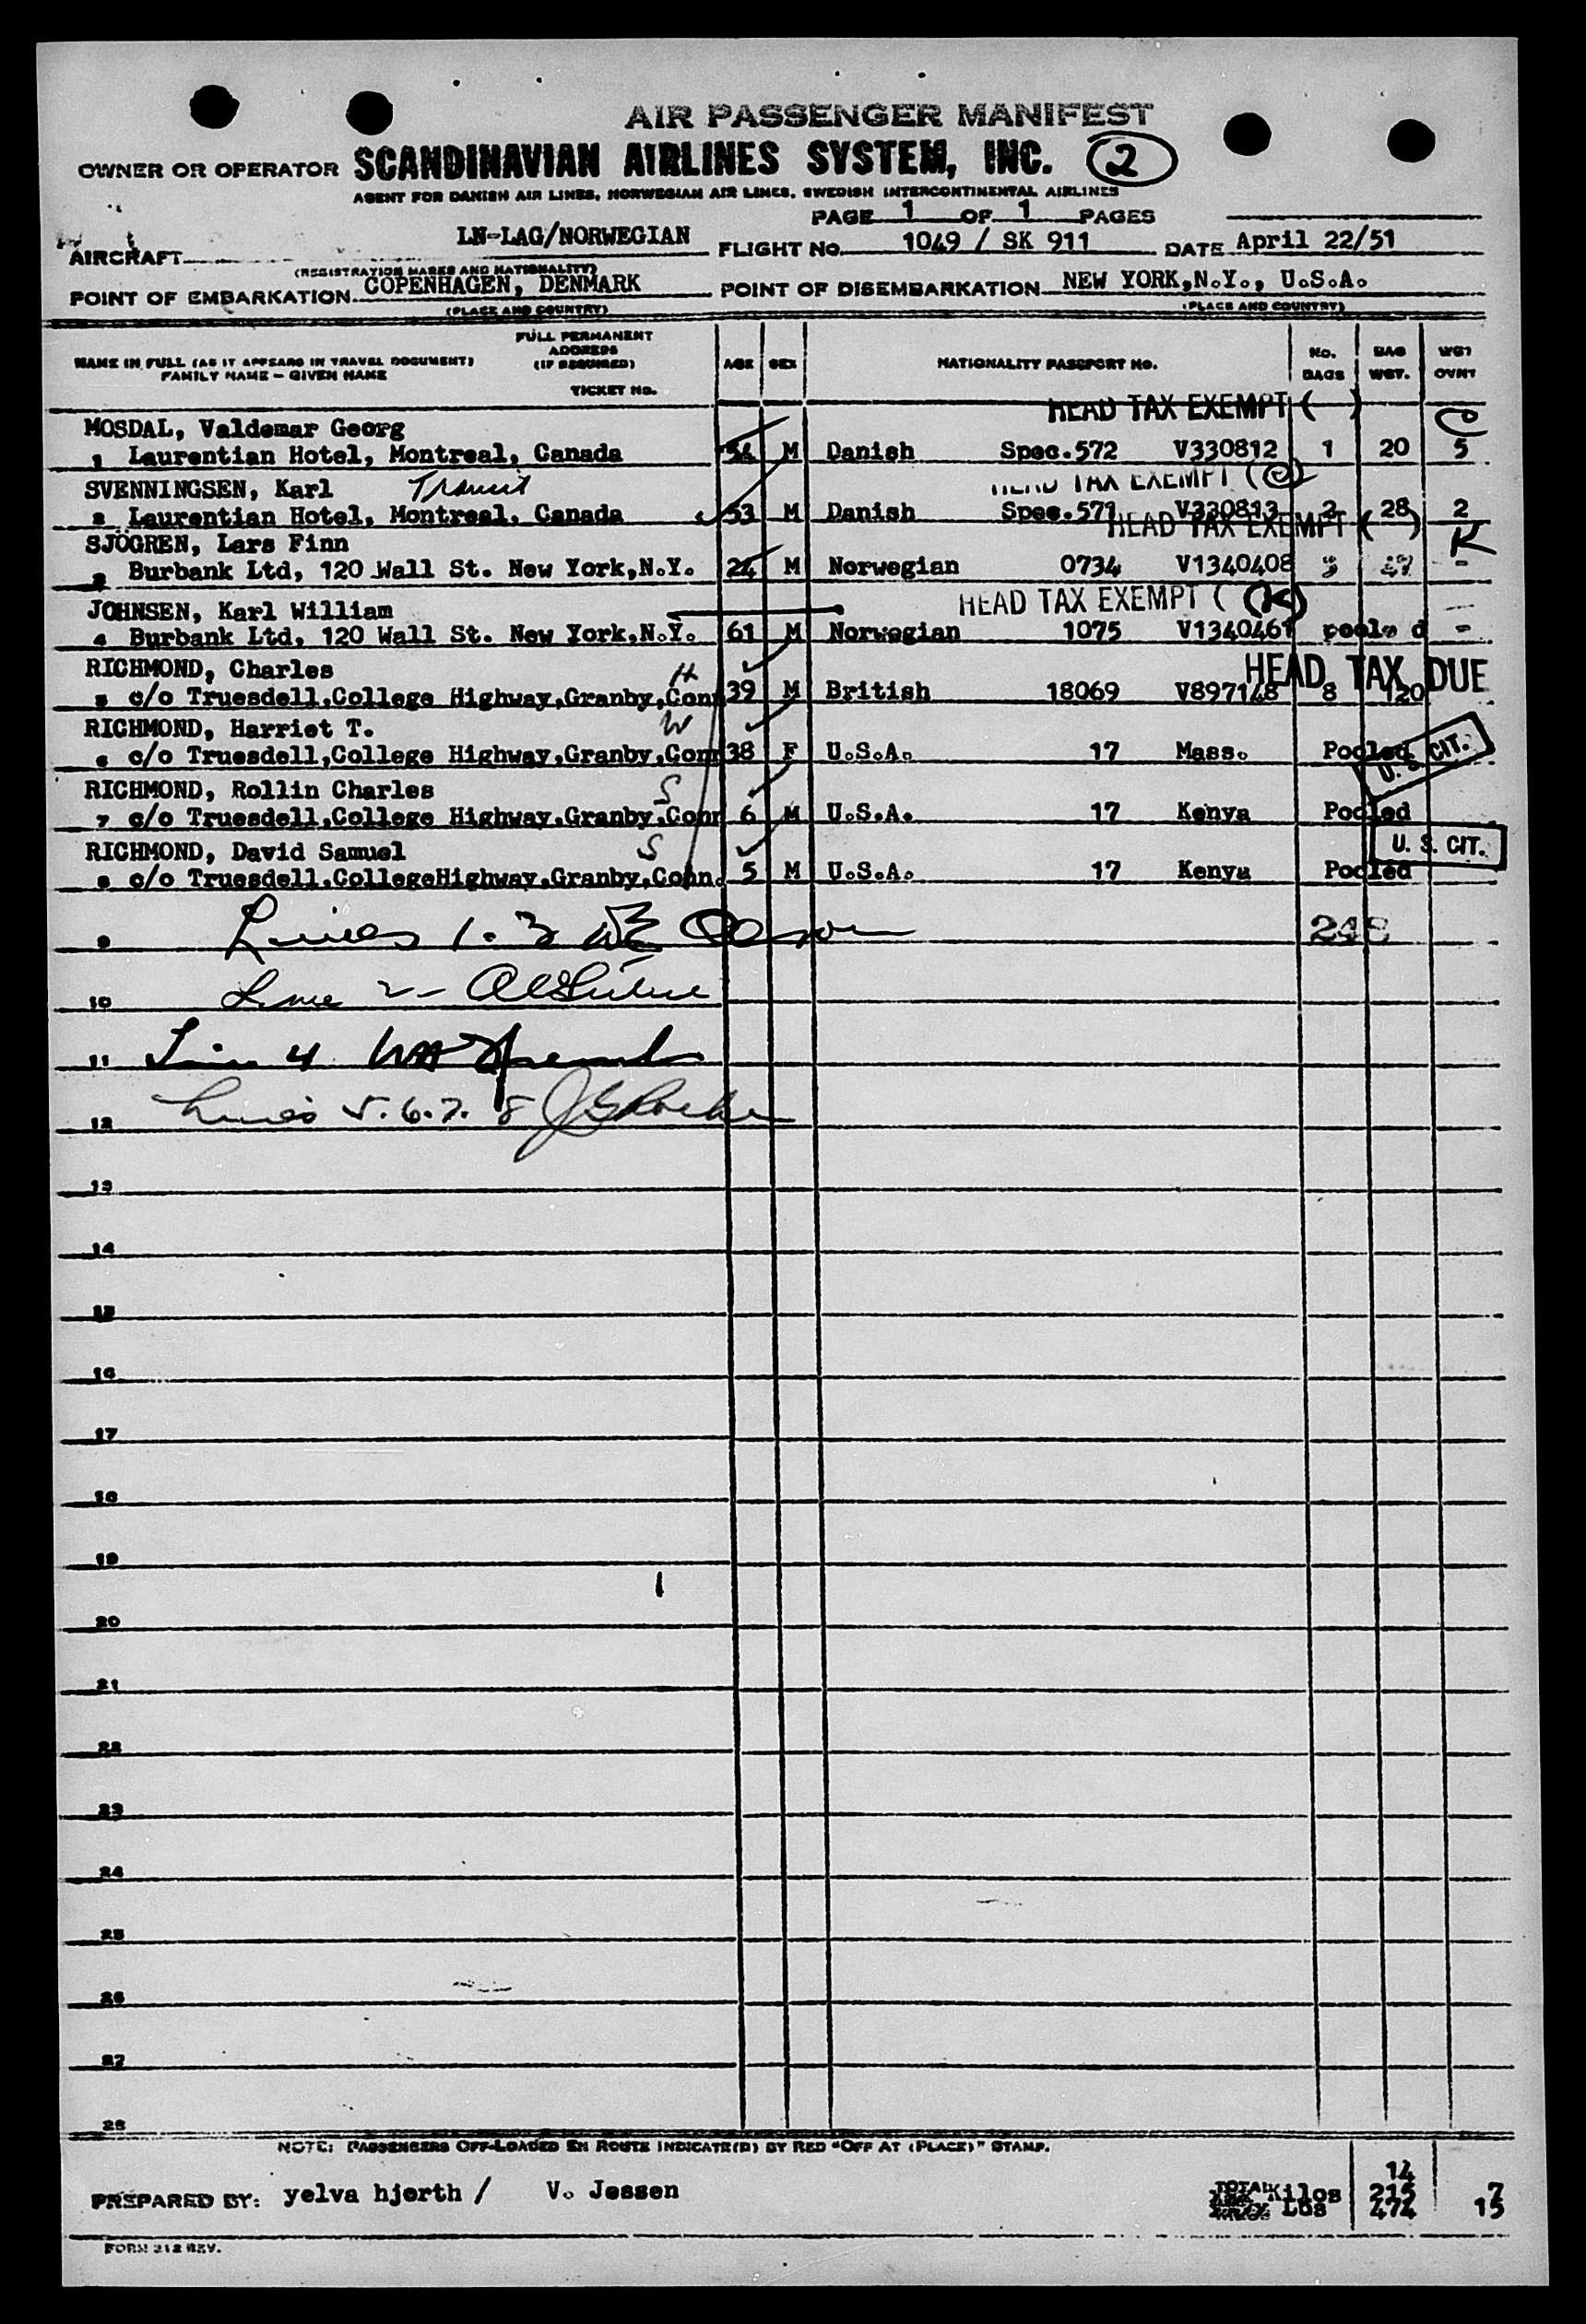 AIR PASSENGER MANIFEST
OWNER OR OPERATOR SCANDINAVIAN AIRLINES SYSTEM, INC. 2
AGENT FOR DANISH AIR LINES, NORWEGIAN AIR LINES, SWEDISH INTERCONTINENTAL AIRLINES
PAGE 1 OF 1 PAGES
AIRCRAFT LN-LAG/NORWEGIAN FLIGHT NO. 1049 / SK 911 DATE April 22/51
(REGISTRATION MARKS AND NATIONALITY)
POINT OF EMBARKATION COPENHAGEN, DENMARK POINT OF DISEMBARKATION NEW YORK,N.Y., U.S.A.
(PLACE AND COUNTRY) (PLACE AND COUNTRY)
NAME IN FULL (AS IT APPEARS IN TRAVEL DOCUMENT) FAMILY NAME - GIVEN NAME FULL PERMANENT ADDRESS (IF REQUIRED) TICKET NO. AGE SEX NATIONALITY PASSPORT NO. NO. BAGS BAG WGT. WGT OVNT
HEAD TAX EXEMPT ( )
MOSDAL, Valdemar Georg
1 Laurentian Hotel, Montreal, Canada 54 M Danish Spec.572 V330812 1 20 5
HEAD TAX EXEMPT (
SVENNINGSEN, Karl Transit
2 Laurentian Hotel, Montreal, Canada 53 M Danish Spec.571 V330813 2 28 2
HEAD TAX EXEMPT ( ) K
SJOGREN, Lars Finn
3 Burbank Ltd, 120 Wall St. New York,N.Y. 24 M Norwegian 0734 V1340408 3 47 -
HEAD TAX EXEMPT (K)
JOHNSEN, Karl William
4 Burbank Ltd, 120 Wall St. New York,N.Y. 61 M Norwegian 1075 V1340461 pooled -
HEAD TAX DUE
RICHMOND, Charles H
5 c/o Truesdell,College Highway,Granby,Conn 39 M British 18069 V897148 8 120
RICHMOND, Harriet T. W
6 c/o Truesdell,College Highway,Granby,Conn 38 F U.S.A. 17 Mass. Pooled
U. S. CIT.
RICHMOND, Rollin Charles S
7 c/o Truesdell,College Highway,Granby,Conn 6 M U.S.A. 17 Kenya Pooled
U. S. CIT.
RICHMOND, David Samuel S
8 c/o Truesdell,CollegeHighway,Granby,Conn. 5 M U.S.A. 17 Kenya Pooled
9 Lines 1.3 Olson 248
10 Line 2
11 Line 4
12 Lines 5.6.7.8
13
14
15
16
17
18
19
20
21
22
23
24
25
26
27
28
NOTE: PASSENGERS OFF-LOADED EN ROUTE INDICATE(D) BY RED "OFF AT (PLACE)" STAMP.
14
PREPARED BY: yelva hjorth / V. Jessen TOTAL Kilos 215 7
Lbs 474 15
FORM 212 REV.